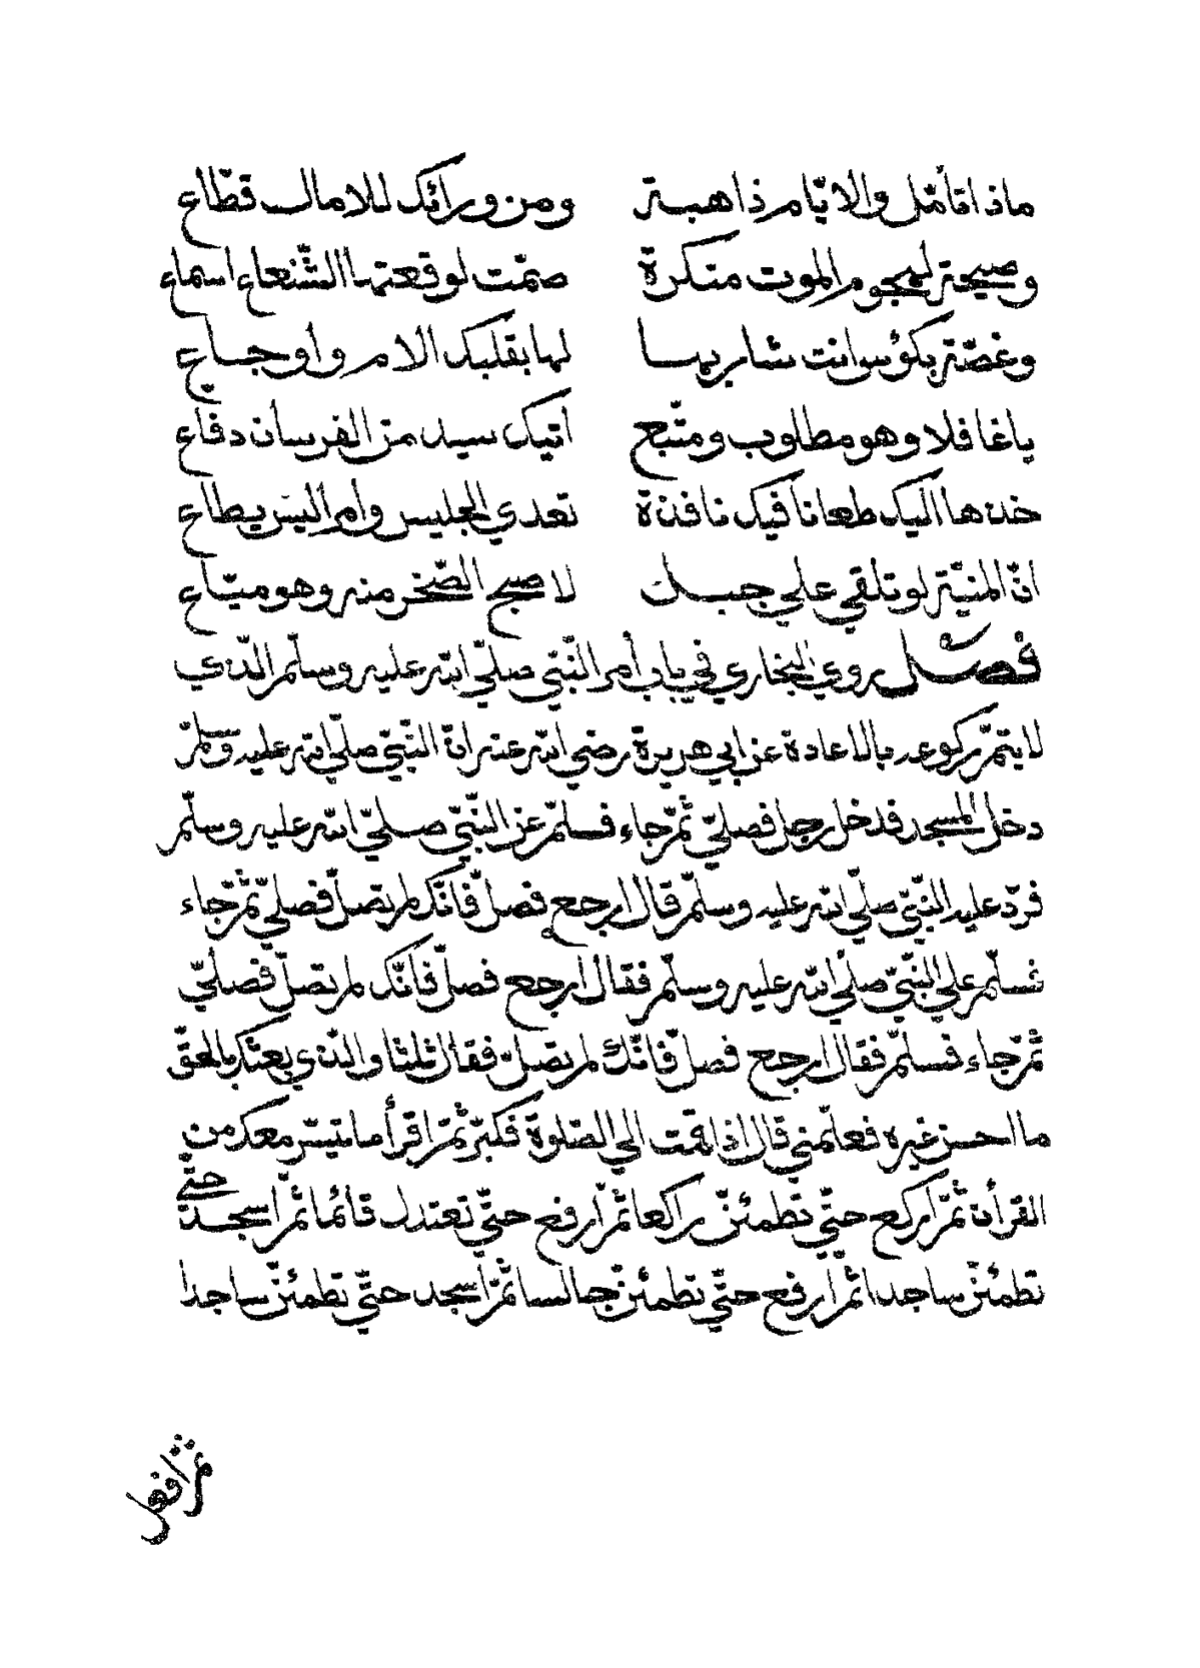 ماذا تأمّل والايّام ذاهبة ومن ورائك للامال قطّاع
وصيحة لهجوم الموت متكرة صمّت لوقعتها الشّنعاء اسماء
وغصّة بكؤس انت شاربها لها بقلبك الام واوجاع
ياغافلا وهو مطلوب ومتّبع اتيك سيد من الفرسان دفاع
خذها اليك طعانا فيك نافذة تعدي الجليس وأمر اليس يطاع
انّ المنيّة لو تلقي علي جبل لاصبح الصّخر منه وهو ميّاع
فصل روي البخاري في باب أمر النّبيّ صلّي الله عليه وسلّم الّذي
لايتمّ ركوعه بالاعادة عن ابي هريرة رضي الله عنه انّ النّبيّ صلّي الله عليه وسلّم
دخل المسجد فدخل رجل فصلّي ثمّ جاء فسلّم عن النّبيّ صلّي الله عليه وسلّم
فردّ عليه النّبيّ صلّي الله عليه وسلّم قال ارجع فصلّ فانّك لم تصلّ فصلّي ثمّ جاء
فسلّم علي النّبيّ صلّي الله عليه وسلّم فقال ارجع فصلّ فانّك لم تصلّ فصلّي
ثمّ جاء فسلّم فقال ارجع فصلّ فانّك لم تصلّ فقال ثلثا والّذي بعثك بالحقّ
ما احسن غيره فعلّمني قال اذا قمت الي الصّلوة فكبّر ثمّ اقرأ ما تيسّر معك من
القرأن ثمّ اركع حتّي تطمئنّ راكعا ثمّ ارفع حتّي تعتدل قائما ثمّ اسجد حتّي
تطمئنّ ساجدا ثمّ ارفع حتّي تطمئنّ جالسا ثمّ اسجد حتّي تطمئنّ ساجدا
ثمّ افعل